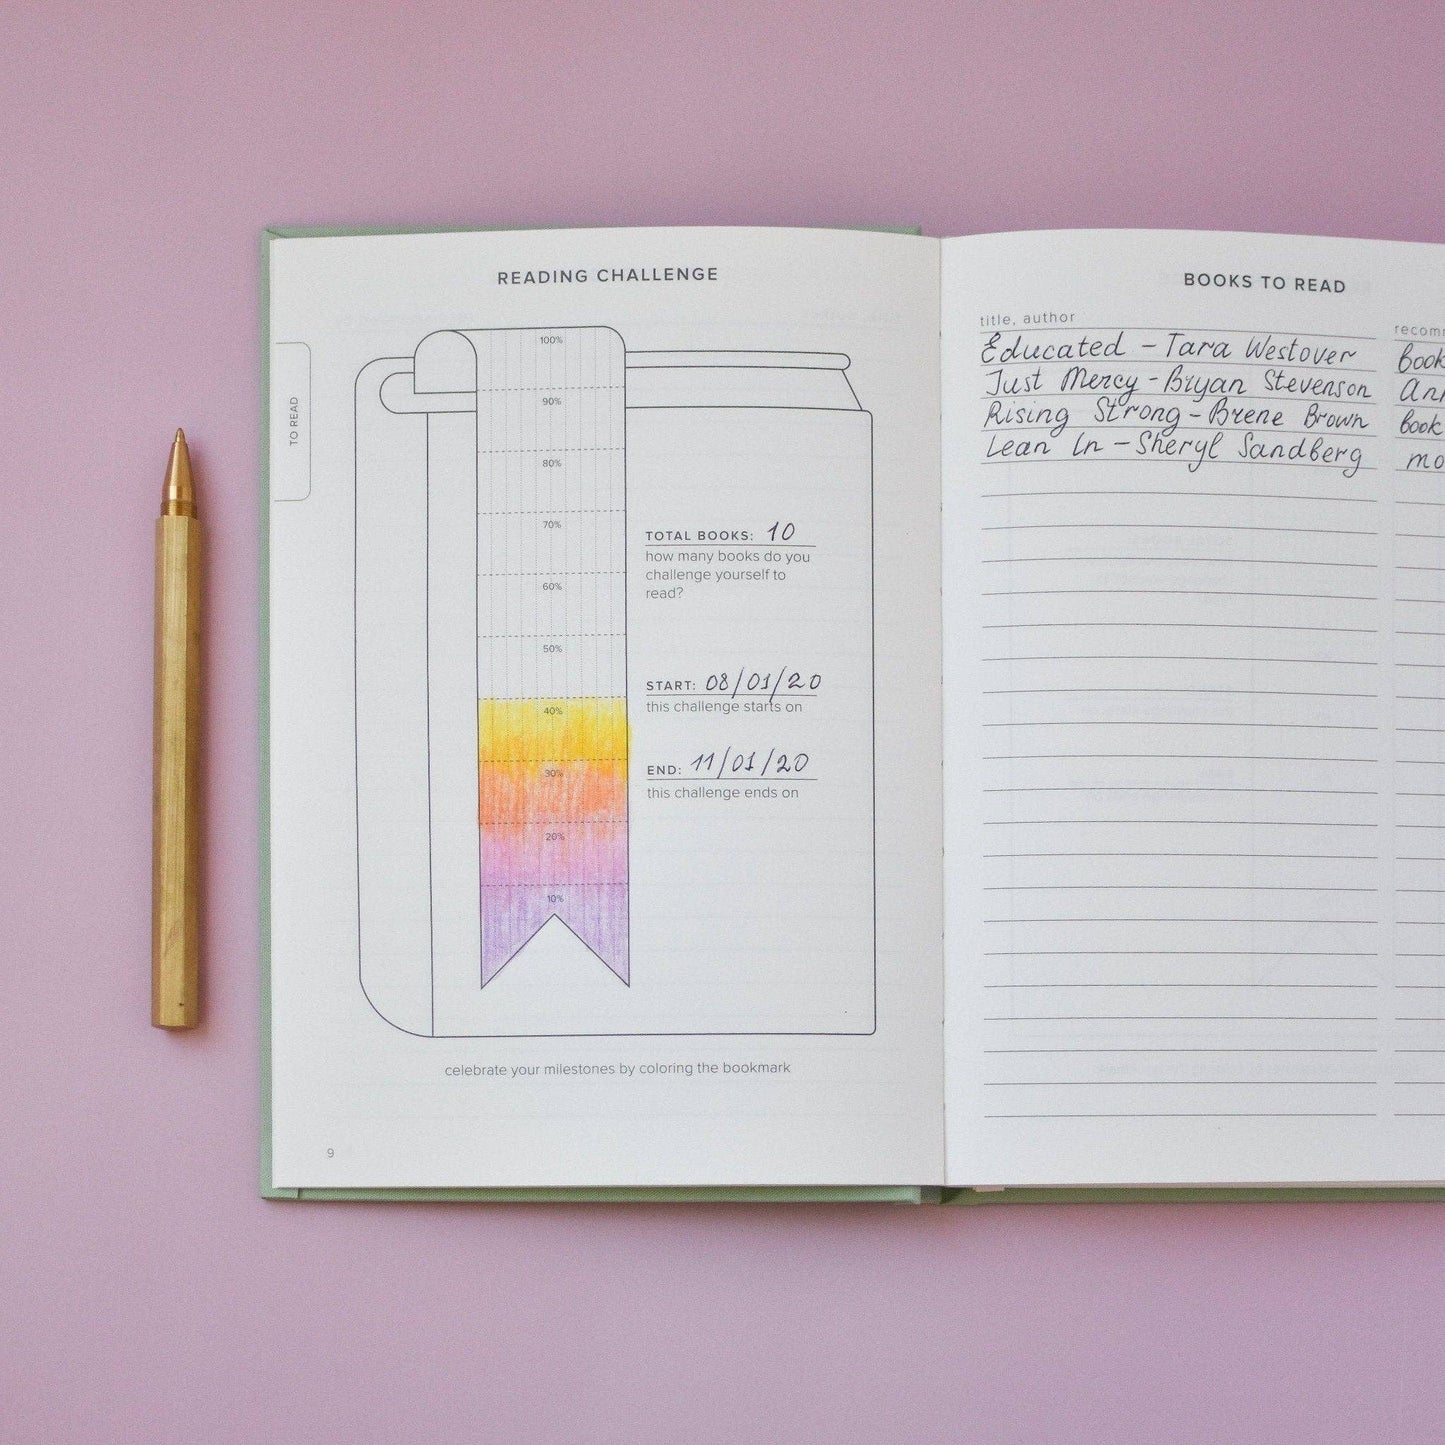 READING CHALLENGE
TO READ
100%
90%
80%
70%
60%
50%
40%
30%
20%
10%
TOTAL BOOKS: 10
how many books do you
challenge yourself to
read?
START: 08/01/20
this challenge starts on
END: 11/01/20
this challenge ends on
celebrate your milestones by coloring the bookmark
9
BOOKS TO READ
title, author recomm
Educated – Tara Westover Book
Just Mercy – Bryan Stevenson Ann
Rising Strong – Brene Brown Book
Lean In – Sheryl Sandberg mo